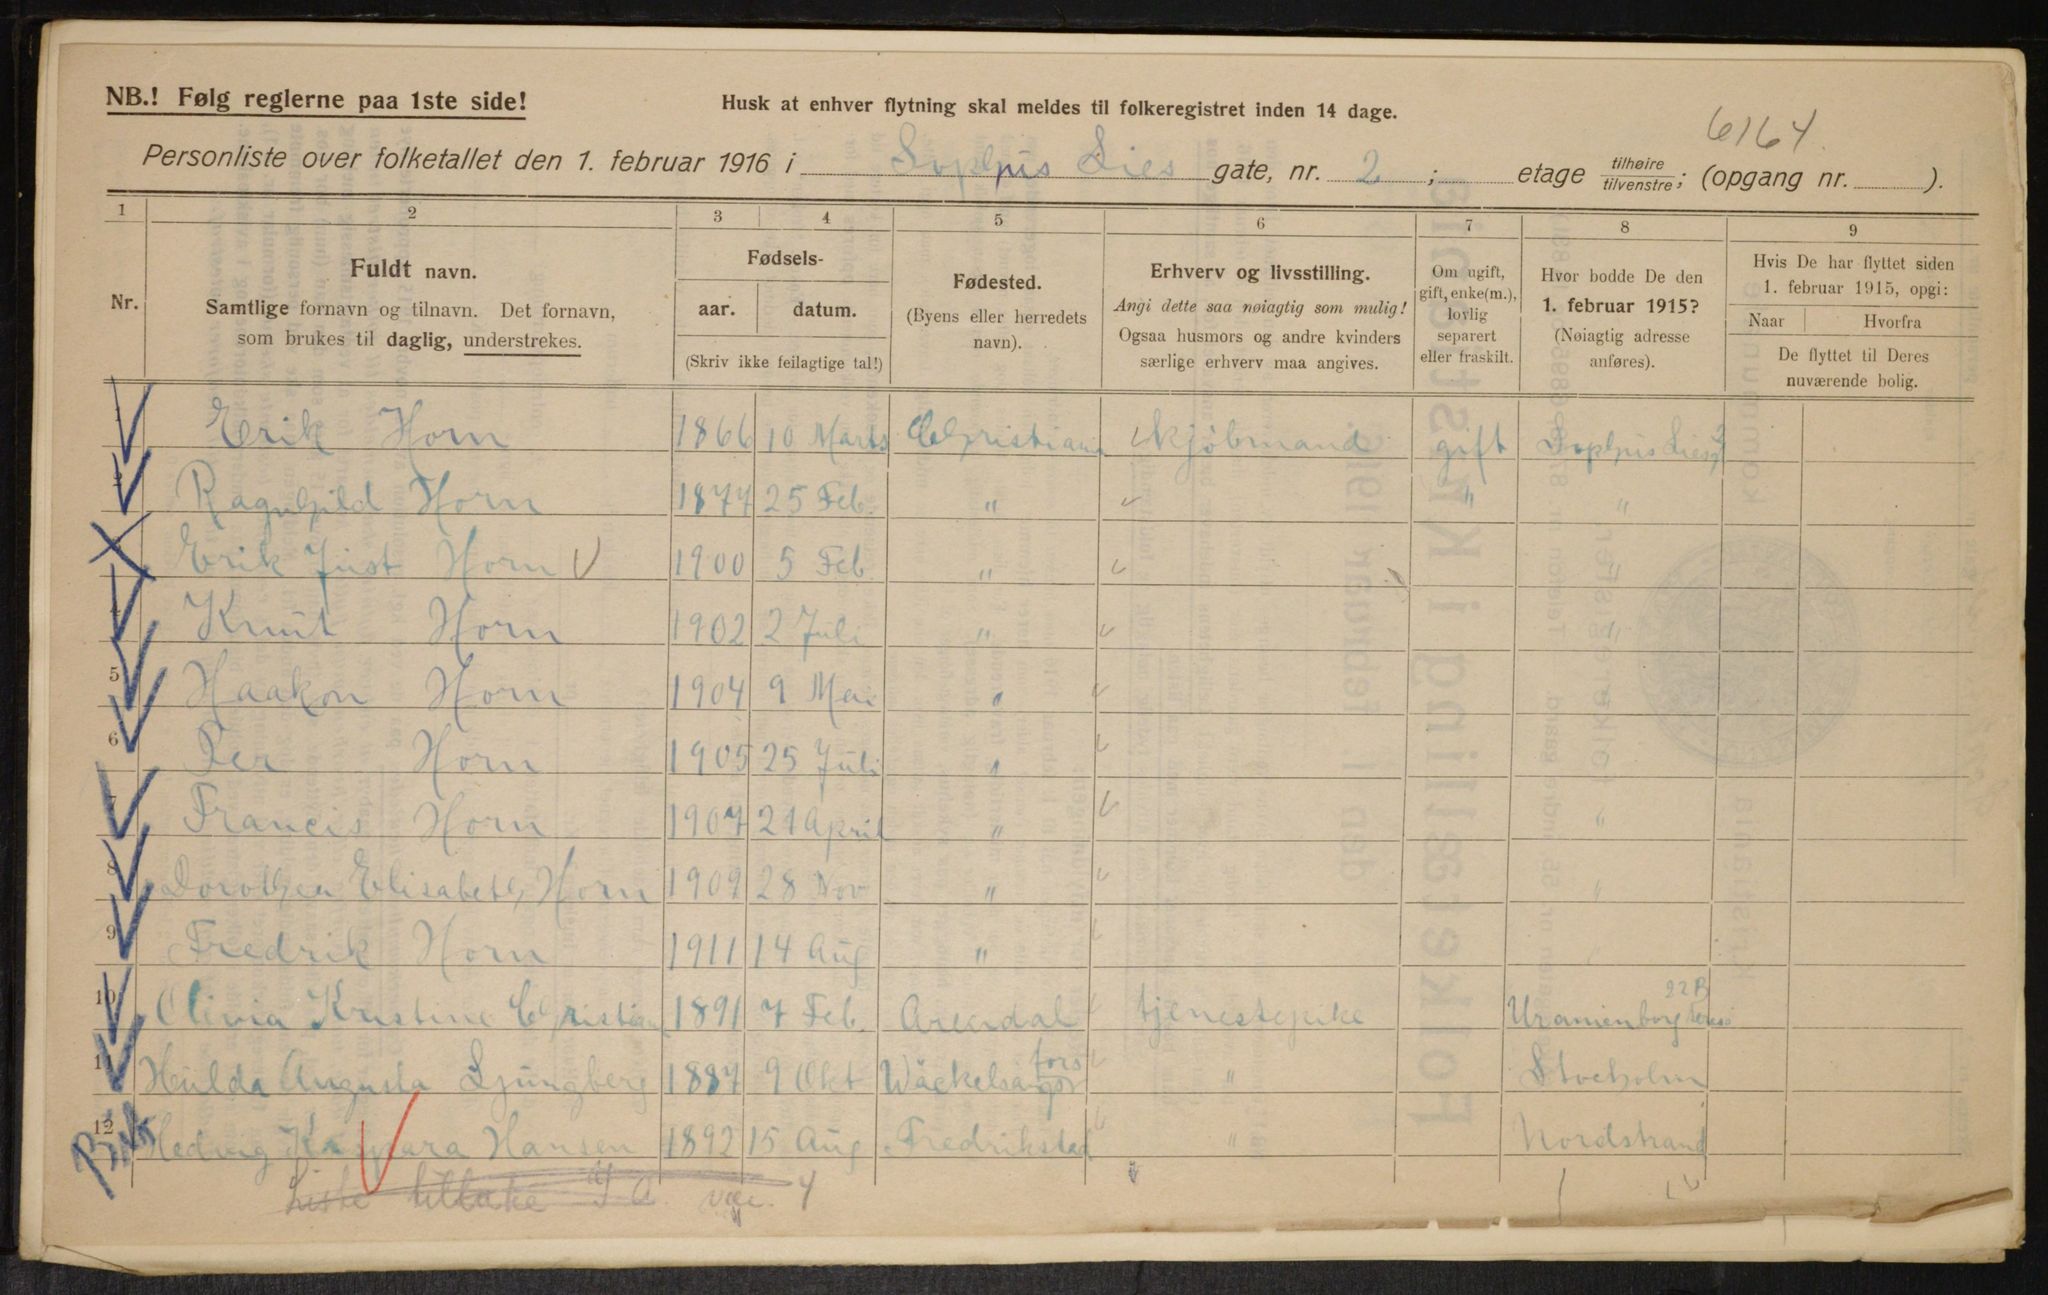 NB.! Følg reglerne paa 1ste side!
Husk at enhver flytning skal meldes til folkeregistret inden 14 dage.
6164.
Personliste over folketallet den 1. februar 1916 i Sophus Lies gate, nr. 2 ; etage tilhøire/tilvenstre; (opgang nr. ).
1 2 3 4 5 6 7 8 9
Nr.
Fuldt navn.
Samtlige fornavn og tilnavn. Det fornavn,
som brukes til daglig, understrekes.
Fødsels-
aar. datum.
(Skriv ikke feilagtige tal!)
Fødested.
(Byens eller herredets
navn).
Erhverv og livsstilling.
Angi dette saa nøiagtig som mulig!
Ogsaa husmors og andre kvinders
særlige erhverv maa angives.
Om ugift,
gift, enke(m.),
lovlig
separert
eller fraskilt.
Hvor bodde De den
1. februar 1915?
(Nøiagtig adresse
anføres).
Hvis De har flyttet siden
1. februar 1915, opgi:
Naar Hvorfra
De flyttet til Deres
nuværende bolig.
1 Erik Horn 1866 10 Marts Christiania Kjøbmand gift Sophus Lies 2
2 Ragnhild Horn 1877 25 Feb. " " "
Erik Just Horn 1900 5 Feb. " "
4 Knut Horn 1902 2 Juli " "
5 Haakon Horn 1904 9 Mai "
6 Per Horn 1905 25 Juli "
7 Francis Horn 1907 21 April " "
8 Dorothea Elisabeth Horn 1909 28 Nov " "
9 Fredrik Horn 1911 14 Aug " "
10 Olivia Kristine Christian 1891 7 Feb. Arendal tjenestepike Uranienborg 22B
11 Hulda Augusta Ljungberg 1887 9 Okt " Stocholm
12 Hedvig Kaspara Hansen 1892 15 Aug Fredrikstad " Nordstrand